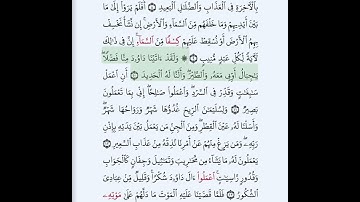 بِٱلۡأٓخِرَةِ فِي ٱلۡعَذَابِ وَٱلضَّلَٰلِ ٱلۡبَعِيدِ ٨ أَفَلَمۡ يَرَوۡاْ إِلَىٰ مَا
بَيۡنَ أَيۡدِيهِمۡ وَمَا خَلۡفَهُم مِّنَ ٱلسَّمَآءِ وَٱلۡأَرۡضِۚ إِن نَّشَأۡ نَخۡسِفۡ
بِهِمُ ٱلۡأَرۡضَ أَوۡ نُسۡقِطۡ عَلَيۡهِمۡ كِسَفٗا مِّنَ ٱلسَّمَآءِۚ إِنَّ فِي ذَٰلِكَ
لَأٓيَةٗ لِّكُلِّ عَبۡدٖ مُّنِيبٖ ٩ ۞ وَلَقَدۡ ءَاتَيۡنَا دَاوُۥدَ مِنَّا فَضۡلٗاۖ
يَٰجِبَالُ أَوِّبِي مَعَهُۥ وَٱلطَّيۡرَۖ وَأَلَنَّا لَهُ ٱلۡحَدِيدَ ١٠ أَنِ ٱعۡمَلۡ
سَٰبِغَٰتٖ وَقَدِّرۡ فِي ٱلسَّرۡدِۖ وَٱعۡمَلُواْ صَٰلِحًاۖ إِنِّي بِمَا تَعۡمَلُونَ
بَصِيرٞ ١١ وَلِسُلَيۡمَٰنَ ٱلرِّيحَ غُدُوُّهَا شَهۡرٞ وَرَوَاحُهَا شَهۡرٞۖ
وَأَسَلۡنَا لَهُۥ عَيۡنَ ٱلۡقِطۡرِۖ وَمِنَ ٱلۡجِنِّ مَن يَعۡمَلُ بَيۡنَ يَدَيۡهِ بِإِذۡنِ
رَبِّهِۦۖ وَمَن يَزِغۡ مِنۡهُمۡ عَنۡ أَمۡرِنَا نُذِقۡهُ مِنۡ عَذَابِ ٱلسَّعِيرِ ١٢
يَعۡمَلُونَ لَهُۥ مَا يَشَآءُ مِن مَّحَٰرِيبَ وَتَمَٰثِيلَ وَجِفَانٖ كَٱلۡجَوَابِ
وَقُدُورٖ رَّاسِيَٰتٍۚ ٱعۡمَلُوٓاْ ءَالَ دَاوُۥدَ شُكۡرٗاۚ وَقَلِيلٞ مِّنۡ عِبَادِيَ
ٱلشَّكُورُ ١٣ فَلَمَّا قَضَيۡنَا عَلَيۡهِ ٱلۡمَوۡتَ مَا دَلَّهُمۡ عَلَىٰ مَوۡتِهِۦٓ